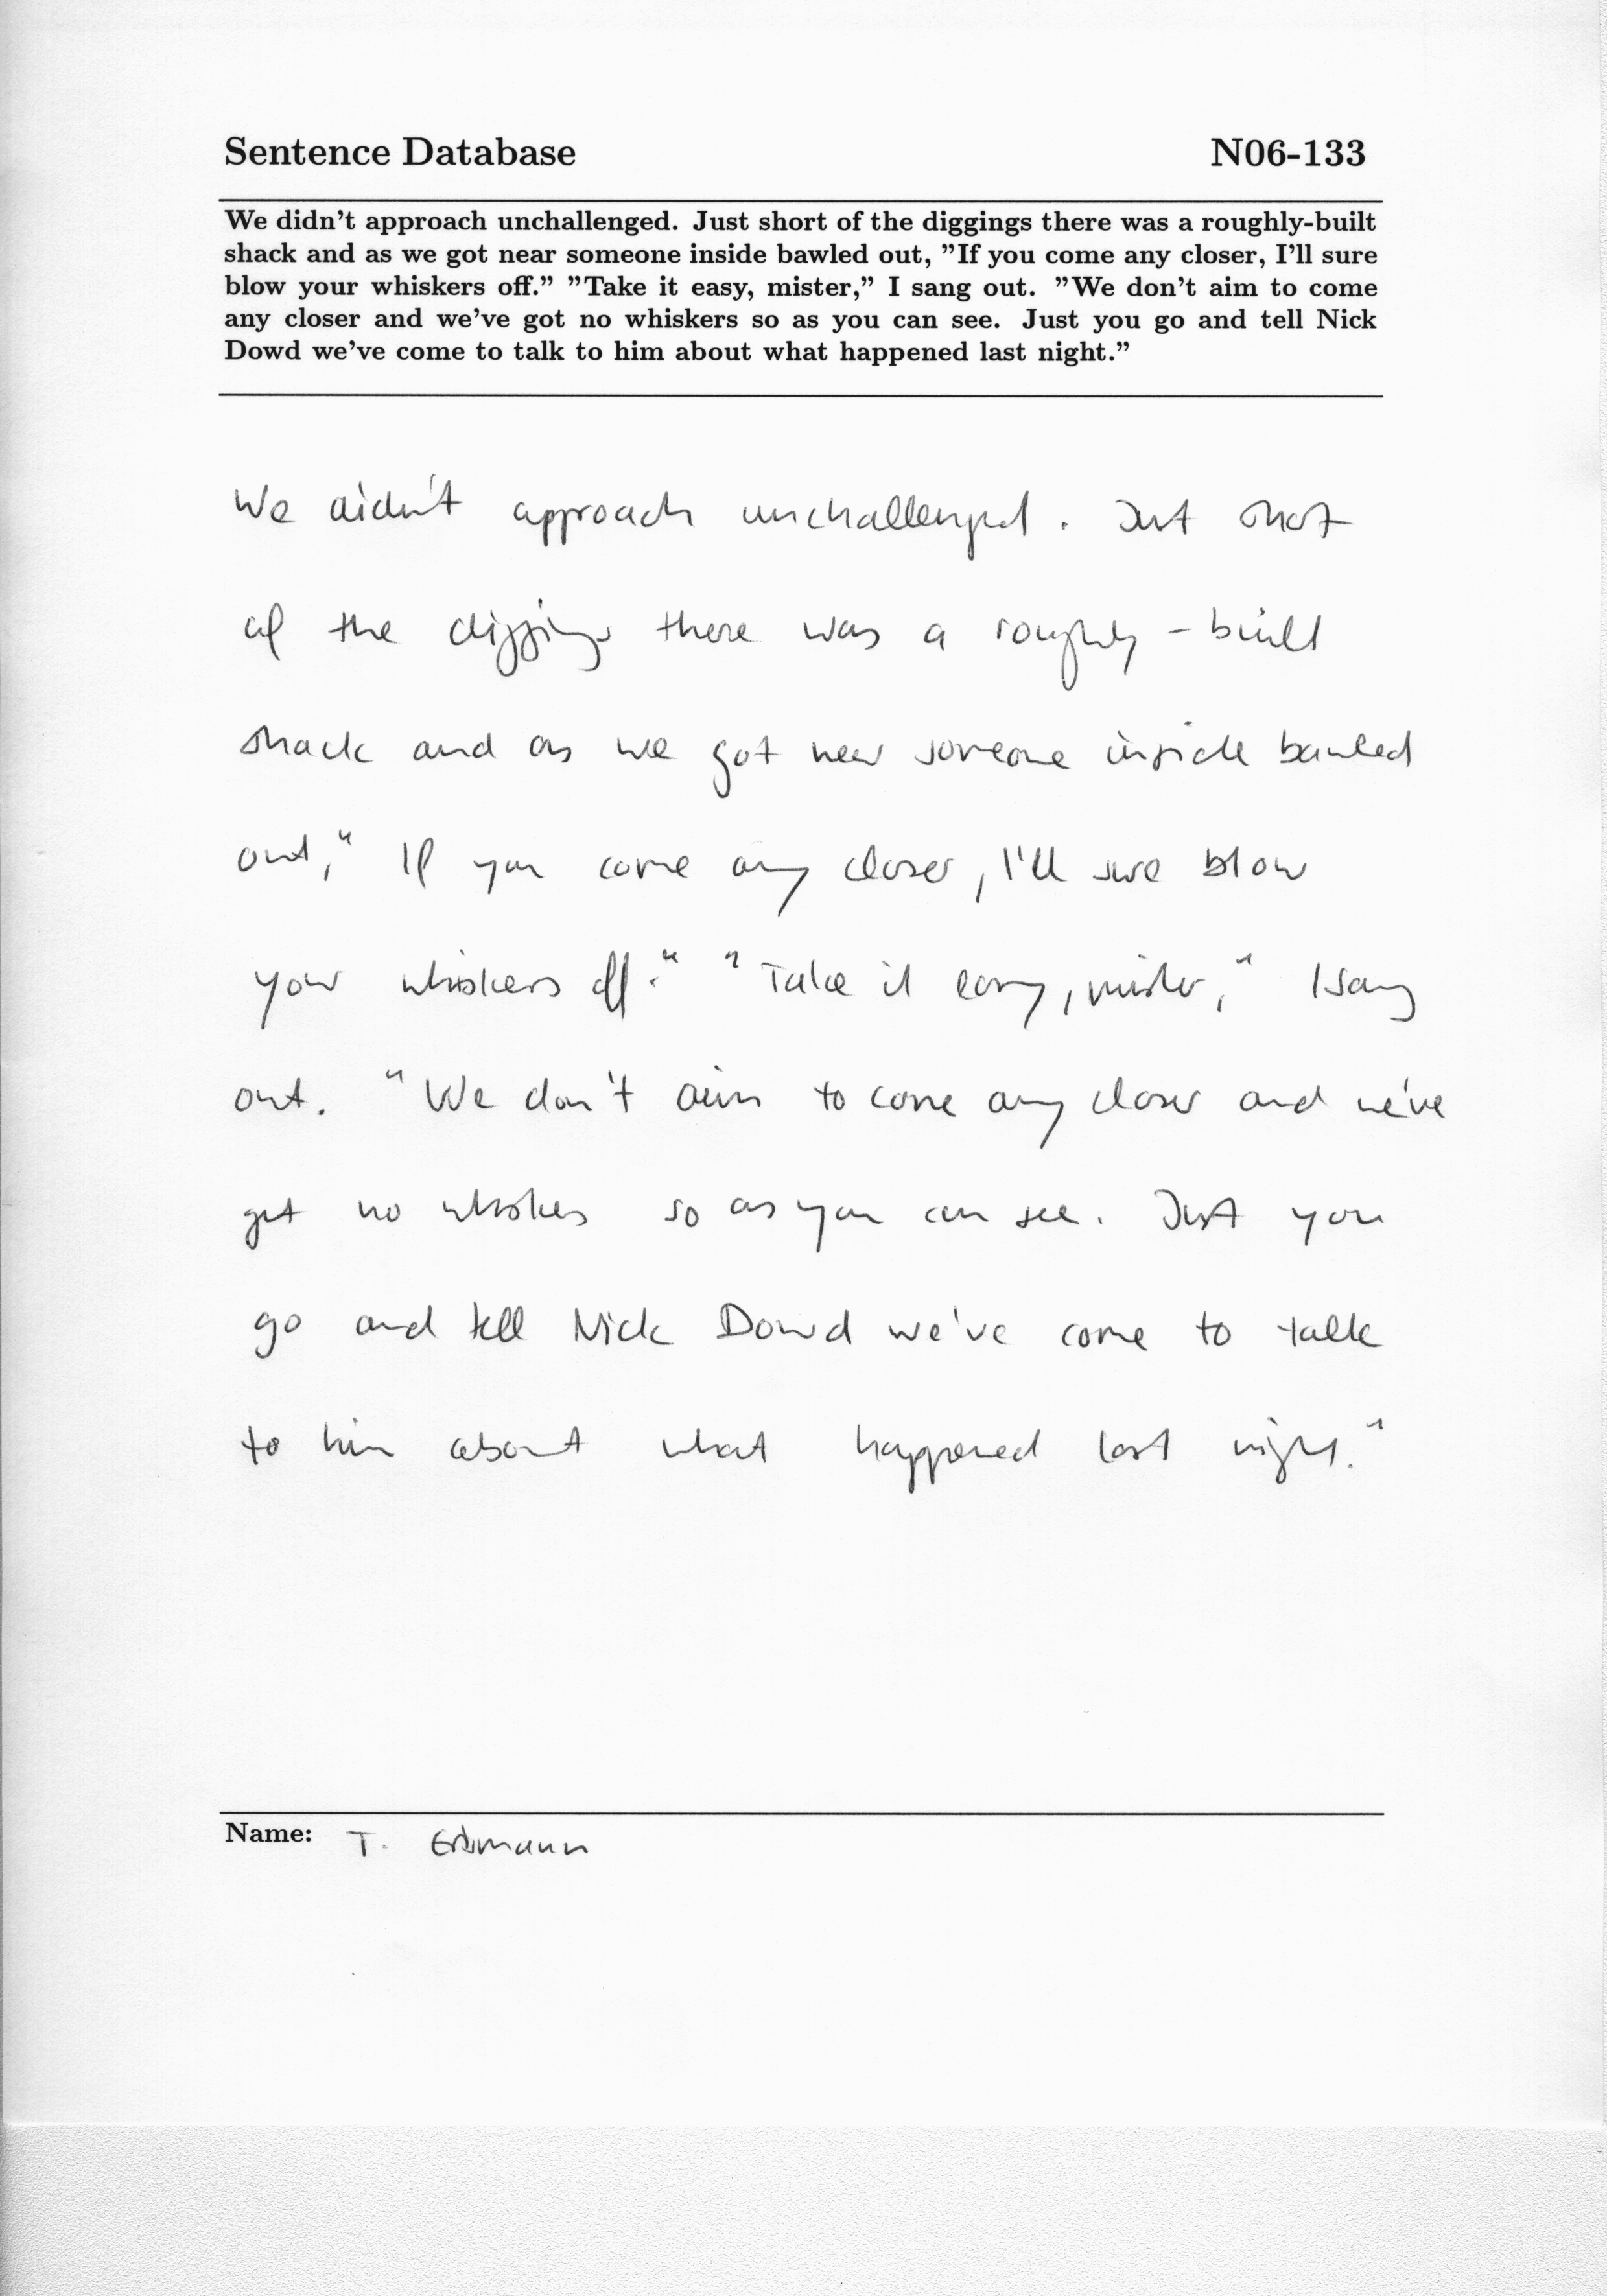 Sentence Database N06-133
We didn't approach unchallenged. Just short of the diggings there was a roughly-built
shack and as we got near someone inside bawled out, ”If you come any closer, I'll sure
blow your whiskers off.” ”Take it easy, mister,” I sang out. ”We don't aim to come
any closer and we've got no whiskers so as you can see. Just you go and tell Nick
Dowd we've come to talk to him about what happened last night.”
We didn't approach unchallenged. Just short
of the diggings there was a roughly-built
shack and as we got near someone inside bawled
out," If you come any closer, I'll sure blow
your whiskers off." "Take it easy, mister," I sang
out. "We don't aim to come any closer and we've
got no whiskers so as you can see. Just you
go and tell Nick Dowd we've come to talk
to him about what happened last night."
Name: T. Erdmann